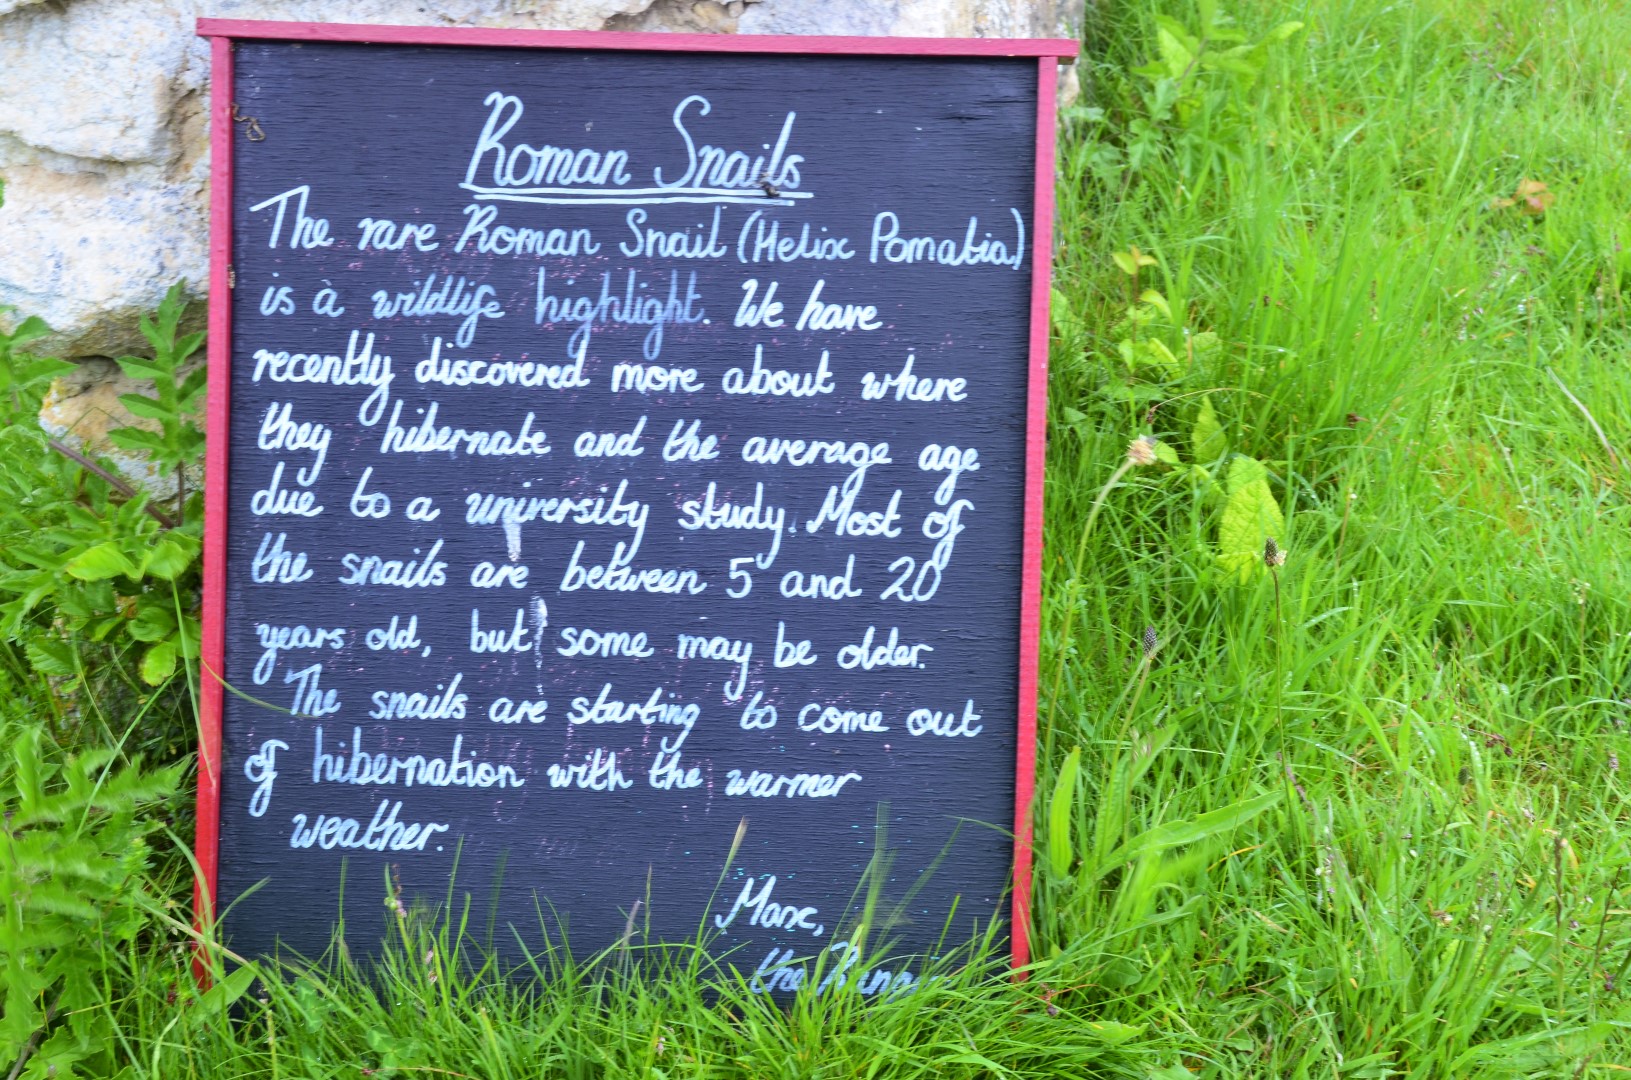 Roman Snails
The rare Roman Snail (Helix Pomatia)
is a wildlife highlight. We have
recently discovered more about where
they hibernate and the average age
due to a university study. Most of
the snails are between 5 and 20
years old, but some may be older.
The snails are starting to come out
of hibernation with the warmer
weather.
Marc,
the